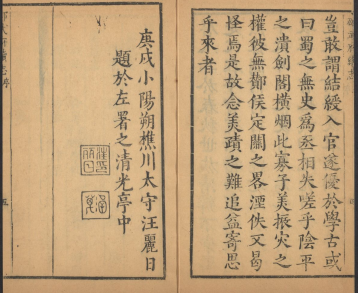 豈敢謂結綬入官遂優於學古或
曰蜀之無史為丞相失嗟乎陰平
之潰劍閣橫烟此寡子美振災之
權彼無鄭侯定關之畧湮佚又曷
怪焉是故念美蹟之難追益寄思
乎來者
庚戌小陽朔樵川太守汪麗日
題於左署之清光亭中